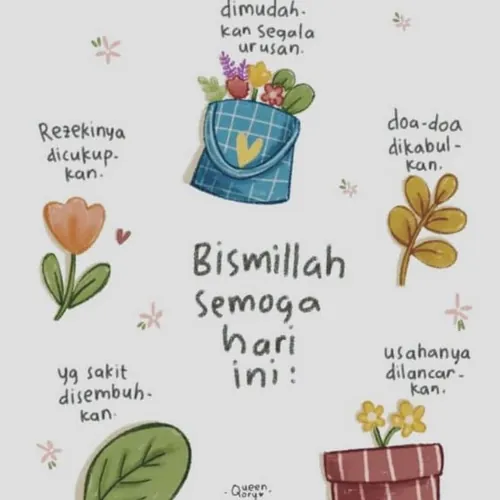 dimudah-
kan segala
urusan.
Rezekinya
dicukup-
kan.
doa-doa
dikabul-
kan.
Bismillah
semoga
hari
ini:
yg sakit
disembuh-
kan.
usahanya
dilancar-
kan.
-Queen-
Glory